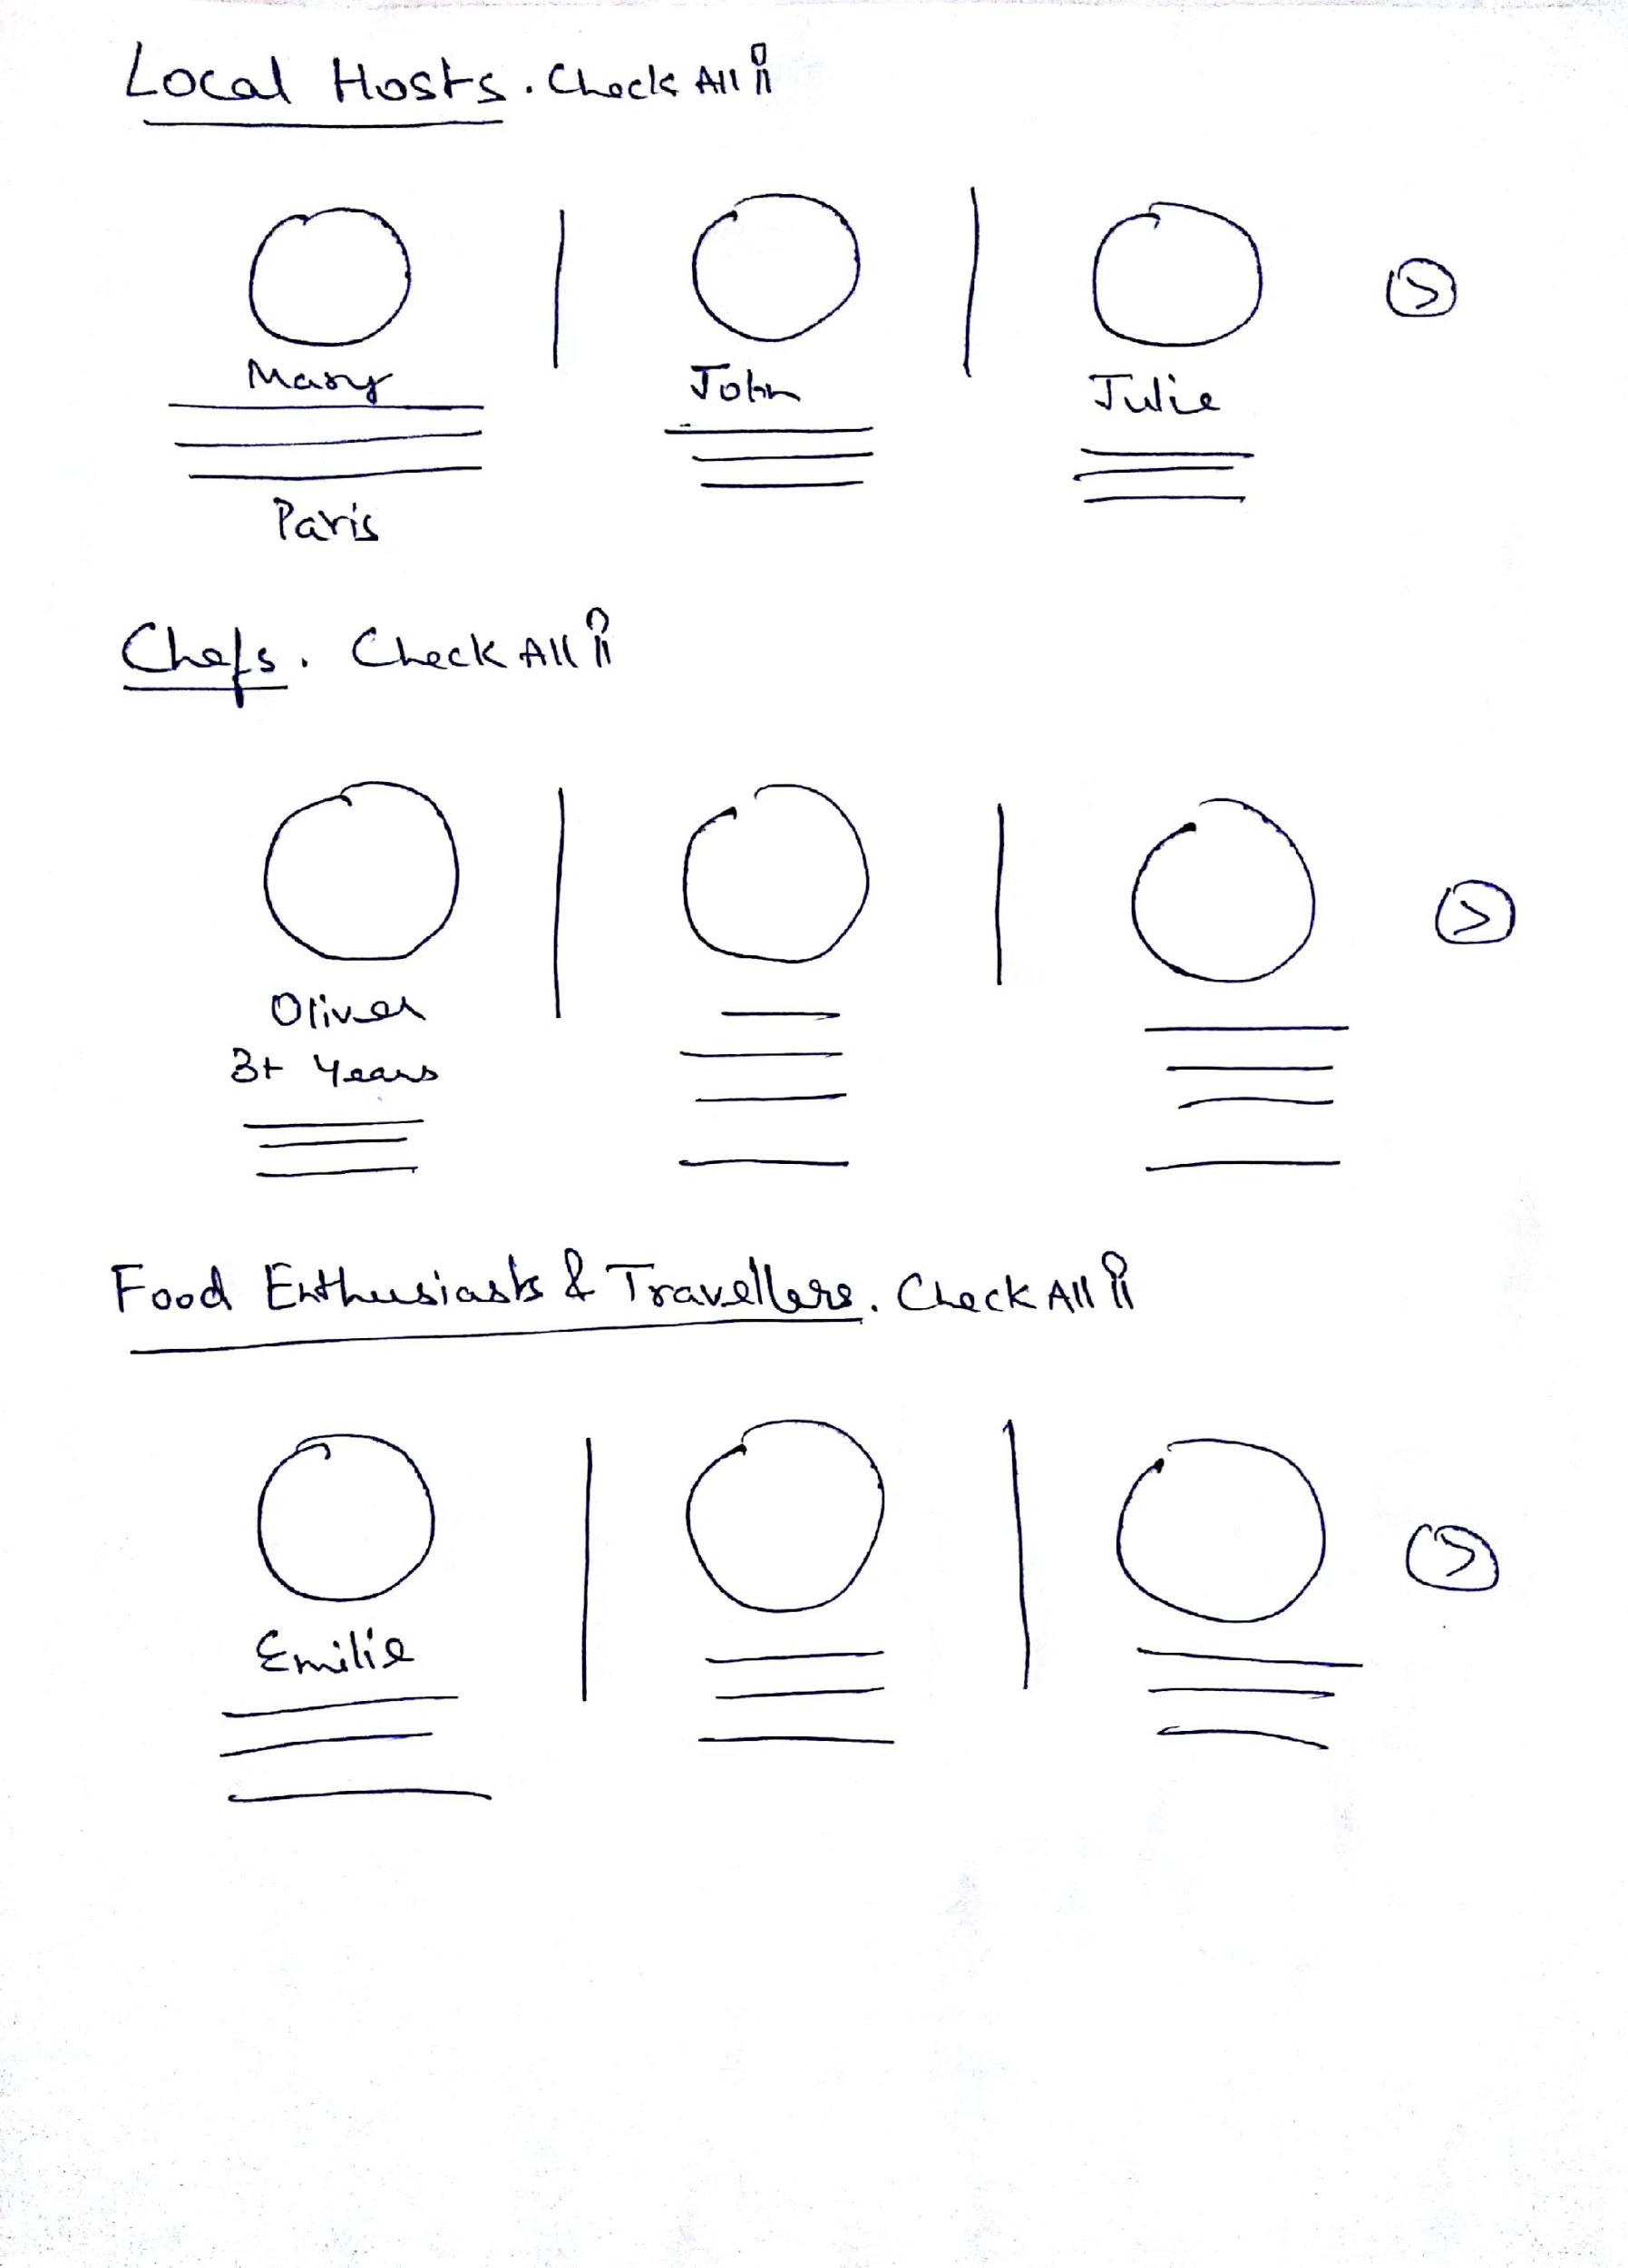 Local Hosts. Check All
Mary
John
Julie
Paris
Chefs. Check All
>
Oliver
3+ Years
Food Enthusiasts & Travellers. Check All
Emilie